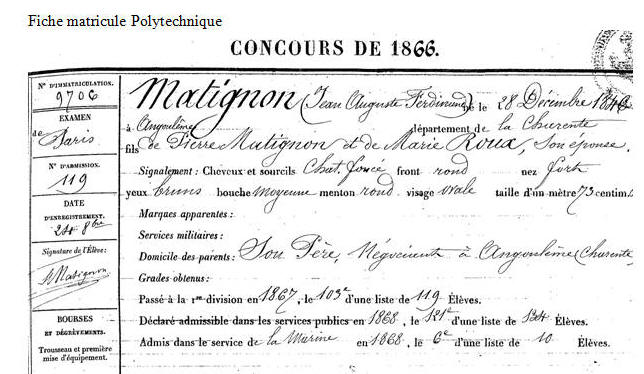 Fiche matricule Polytechnique
CONCOURS DE 1866.
N° D'IMMATRICULATION.
9706
EXAMEN
de Paris
N° D'ADMISSION.
119
DATE
D'ENREGISTREMENT.
24 8bre
Signature de l'Élève:
Matignon
BOURSES
ET DÉGRÈVEMENTS.
Trousseau et première
mise d'équipement.
Matignon (Jean Auguste Ferdinand) né le 28 Décembre 1846
à Angoulême département de la Charente
fils de Pierre Matignon et de Marie Roux, son épouse.
Signalement: Cheveux et sourcils Chat. foncé front rond nez fort
yeux bruns bouche moyenne menton rond visage ovale taille d'un mètre 73 centim.
Marques apparentes:
Services militaires:
Domicile des parents: Son Père, Négociant à Angoulême (Charente)
Grades obtenus:
Passé à la 1re division en 1867, le 103e d'une liste de 119 Élèves.
Déclaré admissible dans les services publics en 1868, le 121e d'une liste de 134 Élèves.
Admis dans le service de la Marine en 1868, le 6e d'une liste de 10 Élèves.